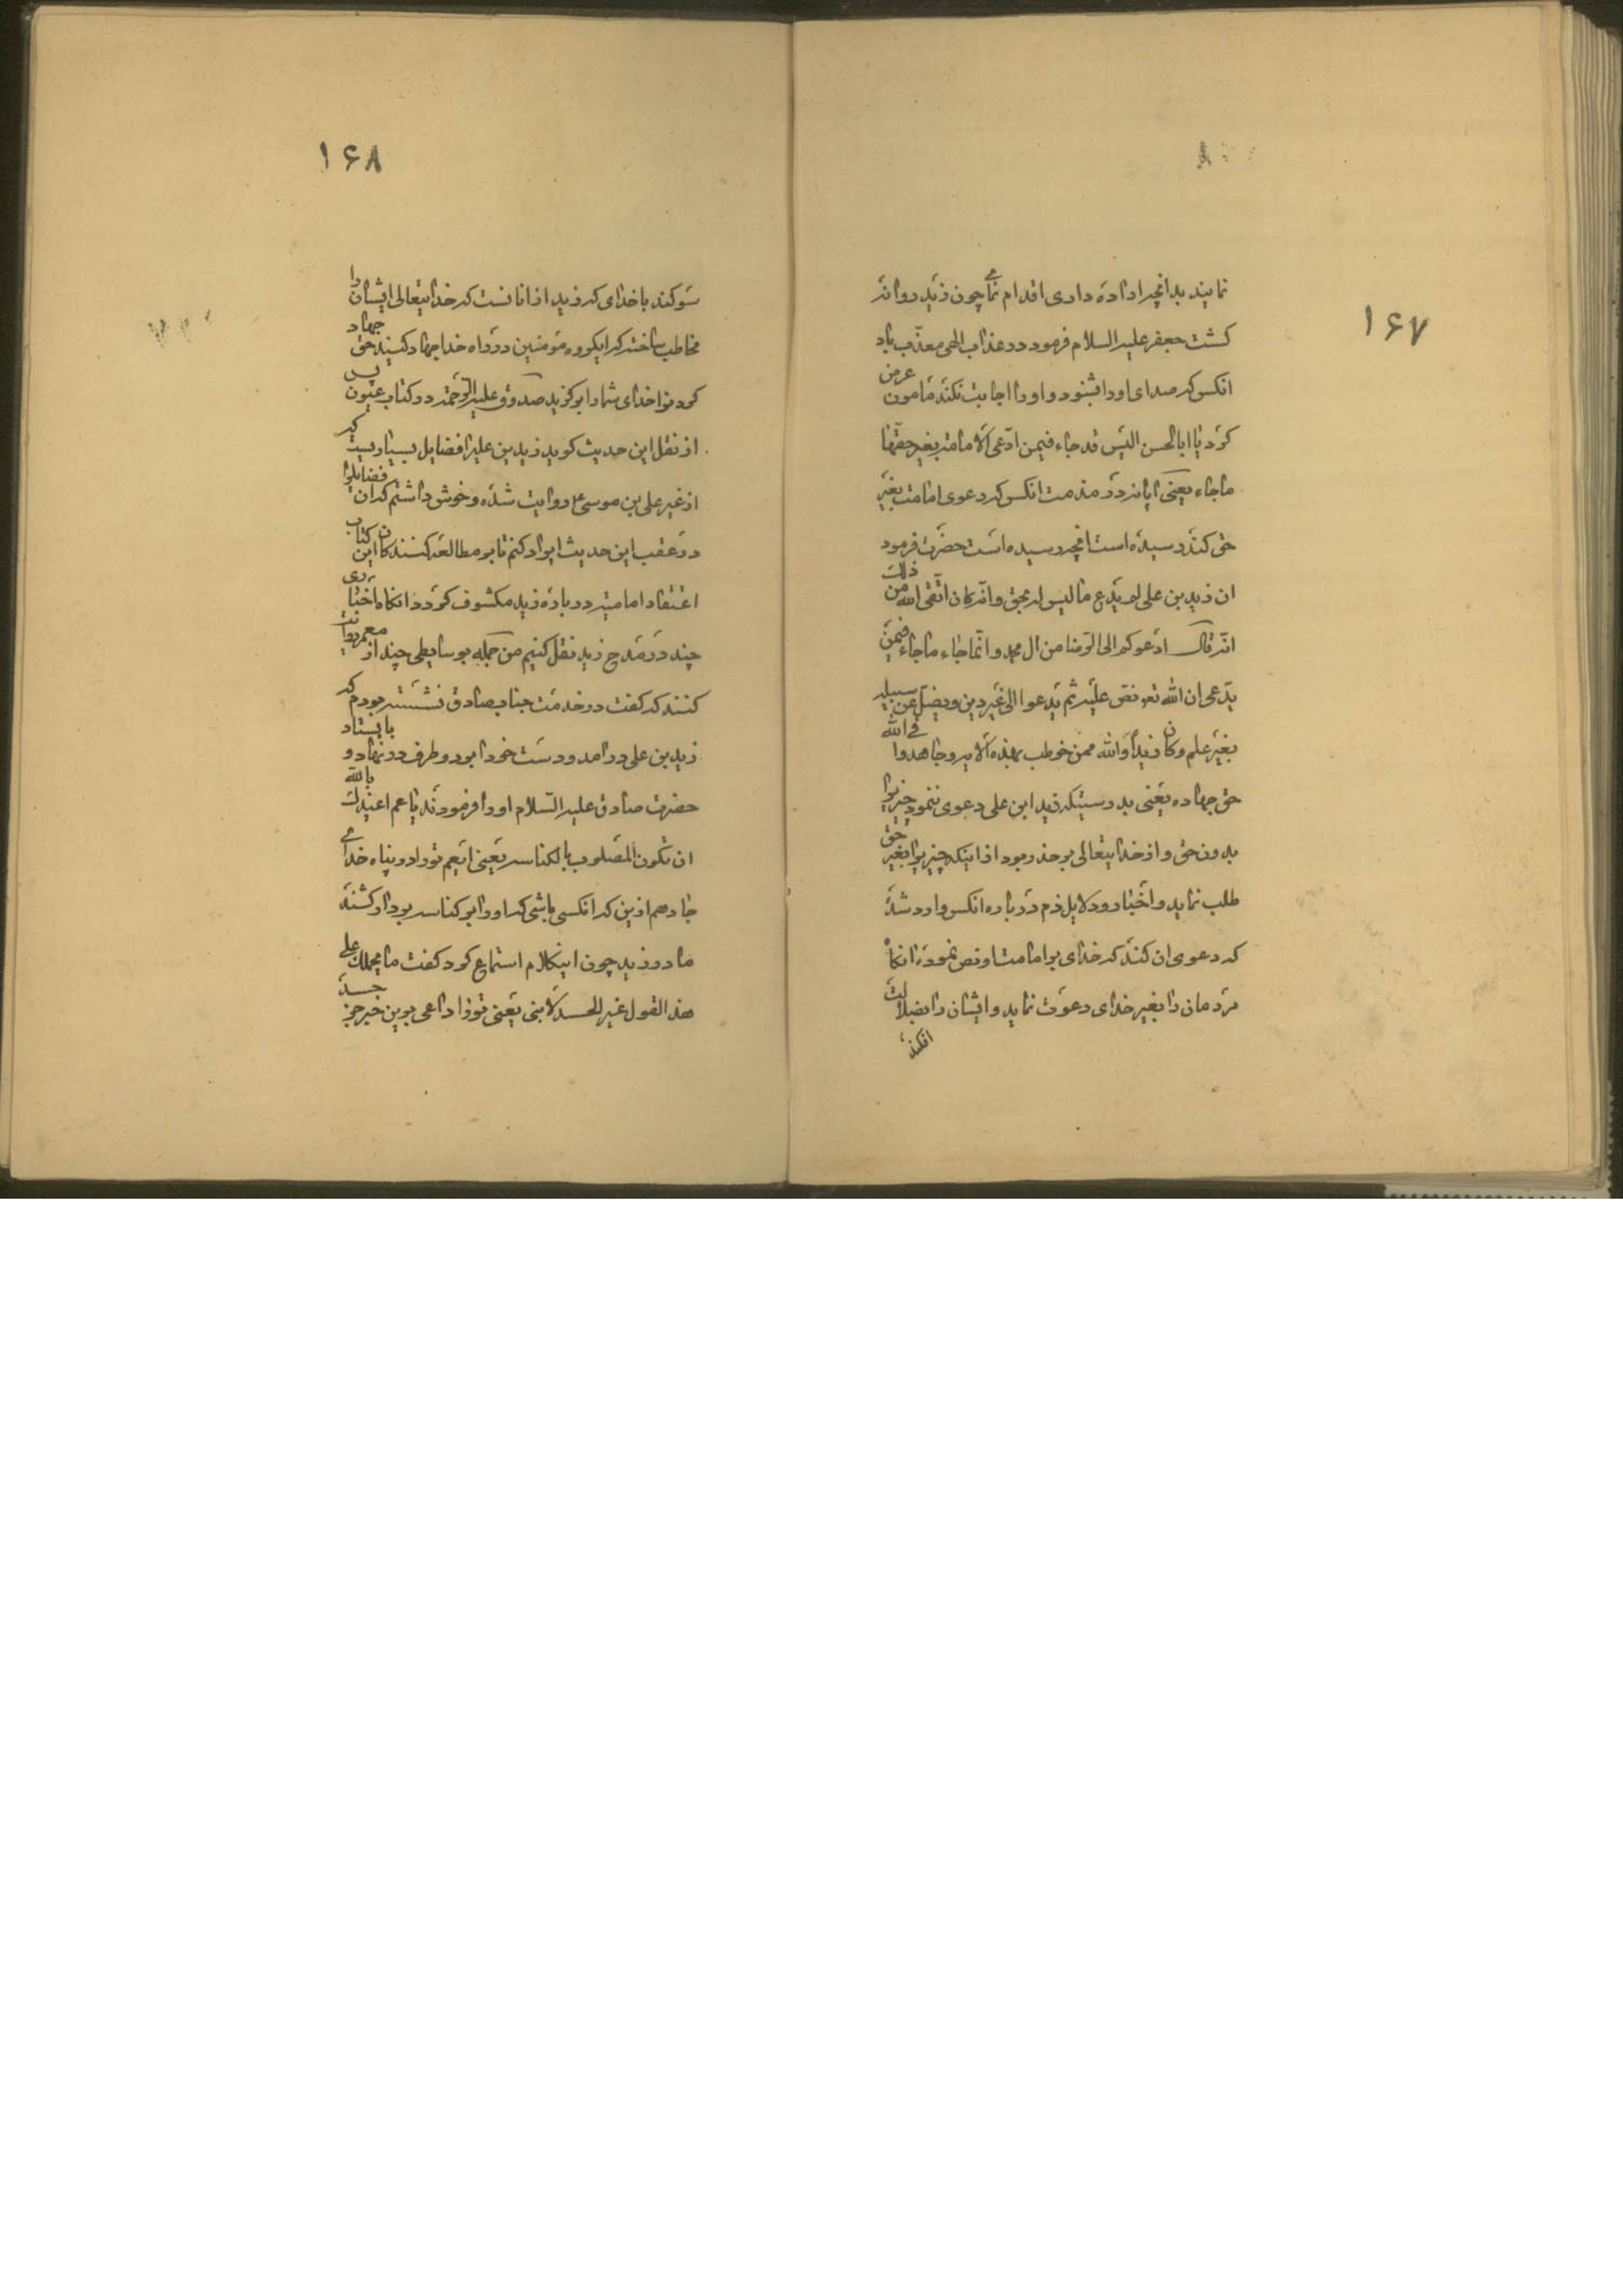 ۱۶۷
نمایند بدانچه اراده داری اقدام نمای چون زید روانه
کشت جعفر علیه السلام فرمود در عذاب الهی معذب باد
انکس که صدای او را بشنود و او را اجابت نکند مامون عرض
کرد یا ابا الحسن الیس قد جاء فیمن ادعی الامامه بغیر حقها
ما جاء یعنی ایا نه در مذمت انکس که دعوی امامت بغیر
حق کند رسیده است انچه رسیده است حضرت فرمود
ان زید بن علی لم یدع ما لیس له بحق و انه کان اتقی الله من ذلک
انه قال ادعوکم الی الرضا من ال محمد و انما جاء ما جاء فیمن
یدعی ان الله تع نص علیه ثم یدعوا الی غیر دین و یضل عن سبیله
بغیر علم و کان زید والله ممن خوطب بهذه الایه و جاهدوا فی الله
حق جهاده یعنی بدرستیکه زید ابن علی دعوی ننمود چیزیرا
بدون حق و از خدایتعالی برحذر بود از اینکه چیزیرا بغیر حق
طلب نماید و اخبار و دلایل ذم در باره انکس وارد شده
که دعوی ان کند که خدای بر امامت او نص نموده انکاه
مردمان را بغیر خدای دعوت نماید و ایشان را بضلالت
افکند
۱۶۸
سوکند باخدای که زید از انانست که خدایتعالی ایشان را
مخاطب ساخته که ایکروه مؤمنین در راه خدا جهاد کنید حق جهاد
کردن خدای شما را بر کزید صدوق علیه الرحمه در کتاب عیون پس
از نقل این حدیث کوید زید بن علی را فضایل بسیار یست که
از غیر علی بن موسی ع روایت شده و خوش داشتم که ان فضایلرا
در عقب این حدیث ایراد کنم تا بر مطالعه کنندکان این کتاب
اعتقاد امامیه در باره زید مکشوف کردد انکاه اخباری
چند در مدح زید نقل کنیم من جمله بوسایطی چند از معمر روایت
کنند که کفت در خدمت جناب صادق نشسته بودم که
زید بن علی در امد و دست خود را بر دو طرف در نهاد و بایستاد
حضرت صادق علیه السلام او را فرمودند یا عم اعیذک بالله
ان تکون المصلوب بالکناسه یعنی ایعم تو را در پناه خدای
جا دهم از ین که انکسی باشی که او را بر کناسه بر دار کشند
مادر زید چون اینکلام استماع کرد کفت ما یحملک علی
هذا القول غیر الحسد لابنی یعنی تو را داعی بر ین خبر جز حسد